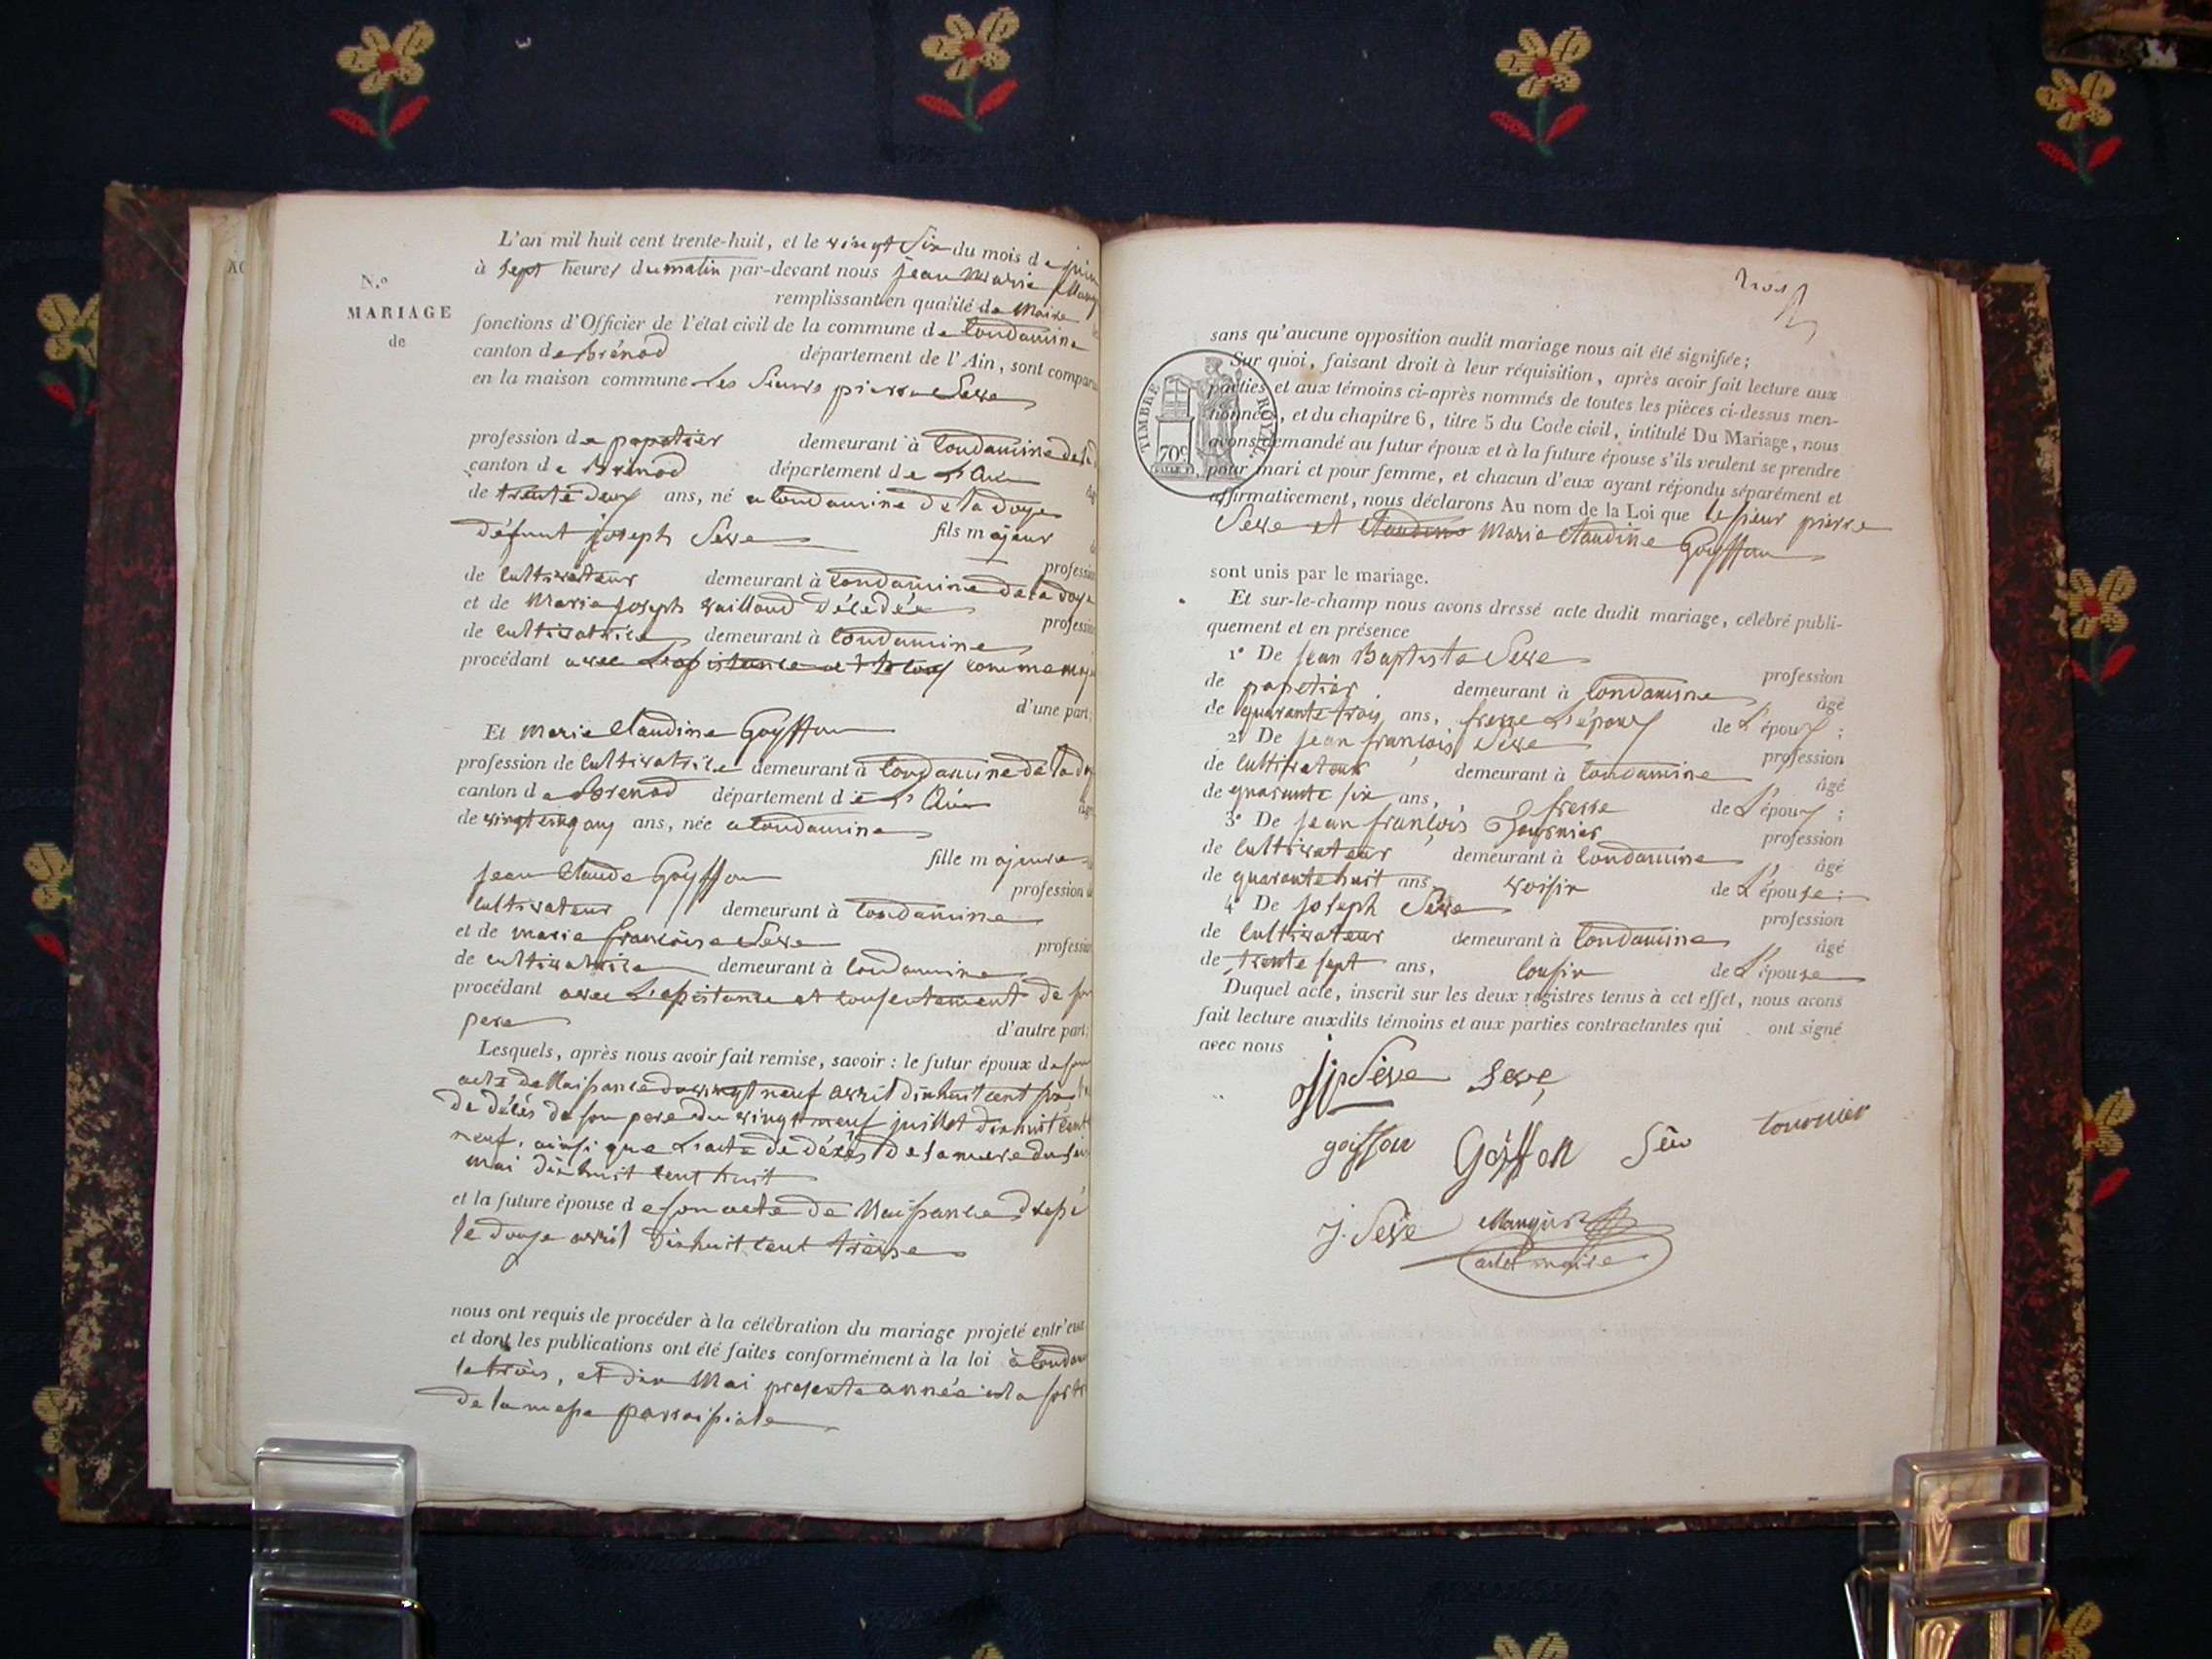 N.º
MARIAGE
de
L'an mil huit cent trente-huit, et le vingt six du mois de juin
à sept heures du matin par-devant nous jean marie
remplissant en qualité de Maire
fonctions d'Officier de l'état civil de la commune de Condamine
canton de Brénod département de l'Ain, sont comparu
en la maison commune les Sieurs pierre Seve
profession de papetier demeurant à Condamine de la
canton de Brénod département de L'Ain
de trente deux ans, né a Condamine de la doye
fils majeur
défunt joseph Seve
profession
de cultivateur demeurant à Condamine de la doye
et de Marie joseph vailloud décedée
profession
de cultivatrice demeurant à Condamine
procédant avec L'assistance et le comme
d'une part,
Et marie Claudine Goyffon
profession de cultivatrice demeurant à Condamine de la
canton de Brenod département de L'Ain
âgé
de vingt cinq ans, née a Condamine
fille majeure
jean Claude Goyffon
profession
cultivateur demeurant à Condamine
et de marie françoise Seve
profession
de cultivatrice demeurant à Condamine
procédant avec L'assistance et consentement de son
pere
d'autre part;
Lesquels, après nous avoir fait remise, savoir: le futur époux de son
acte de Naissance du vingt neuf avril dix huit cent six
de décès de son pere du vingt neuf juillet dix huit cent
neuf, ainsi que L'acte de décès de sa mere du
mai dix huit cent huit
et la future épouse de son acte de Naissance dressé
le douze avril dix huit cent treize
nous ont requis de procéder à la célébration du mariage projeté entr'eux
et dont les publications ont été faites conformément à la loi à
le trois, et dix Mai presente année a la
de la messe parroissiale
sans qu'aucune opposition audit mariage nous ait été signifiée;
Sur quoi, faisant droit à leur réquisition, après avoir fait lecture aux
parties et aux témoins ci-après nommés de toutes les pièces ci-dessus men-
tionnées, et du chapitre 6, titre 5 du Code civil, intitulé Du Mariage, nous
avons demandé au futur époux et à la future épouse s'ils veulent se prendre
pour mari et pour femme, et chacun d'eux ayant répondu séparément et
affirmativement, nous déclarons Au nom de la Loi que le sieur pierre
Seve et Claudine Marie Claudine Goyffon
TIMBRE ROYAL
70c
sont unis par le mariage.
Et sur-le-champ nous avons dressé acte dudit mariage, célébré publi-
quement et en présence
1º De jean Baptiste Seve
profession
de papetier demeurant à Condamine
âgé
de quarante trois ans, frere L'époux de L'époux;
2º De jean françois Seve
profession
de cultivateur demeurant à Condamine
âgé
de quarante six ans, frere de L'époux;
3º De jean françois Tournier
profession
de cultivateur demeurant à Condamine
âgé
de quarante huit ans, voisin de L'épouse;
4º De joseph Seve
profession
de cultivateur demeurant à Condamine
âgé
de trente sept ans, cousin de L'épouse
Duquel acte, inscrit sur les deux registres tenus à cet effet, nous avons
fait lecture auxdits témoins et aux parties contractantes qui ont signé
avec nous
Seve Seve
goiffon Goiffon tournier
J. Seve
maire